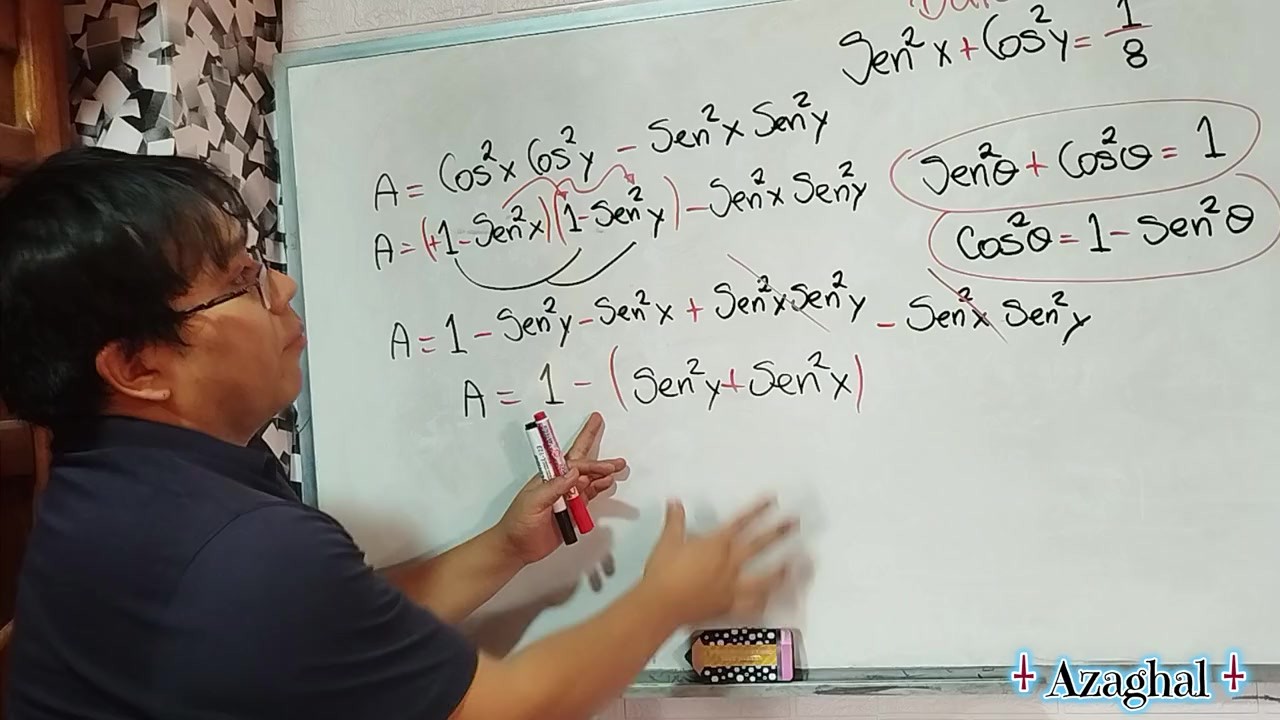 Sen²x + Cos²y = 1/8
A = Cos²x Cos²y - Sen²x Sen²y
A = (+1 - Sen²x)(1 - Sen²y) - Sen²x Sen²y
Sen²θ + Cos²θ = 1
Cos²θ = 1 - Sen²θ
A = 1 - Sen²y - Sen²x + Sen²x Sen²y - Sen²x Sen²y
A = 1 - (Sen²y + Sen²x)
Azaghal